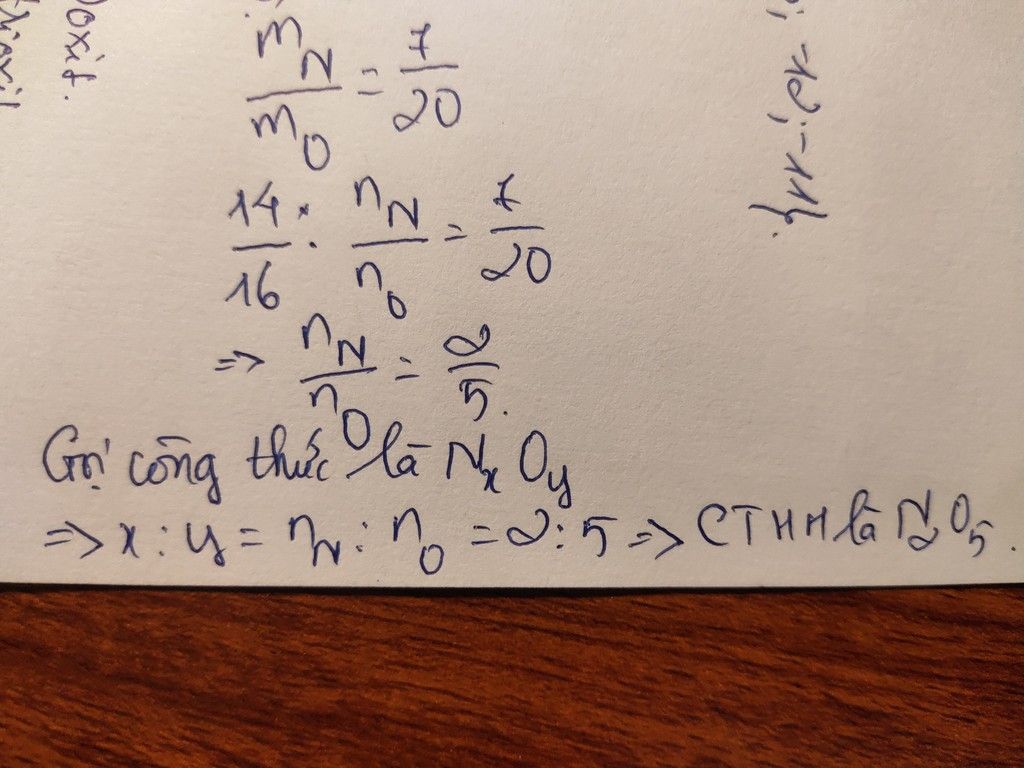 m_N / m_O = 7/20
14/16 . n_N / n_O = 7/20
=> n_N / n_O = 2/5.
Gọi công thức là NxOy
=> x : y = n_N : n_O = 2 : 5 => CTHH là N2O5.
oxit.